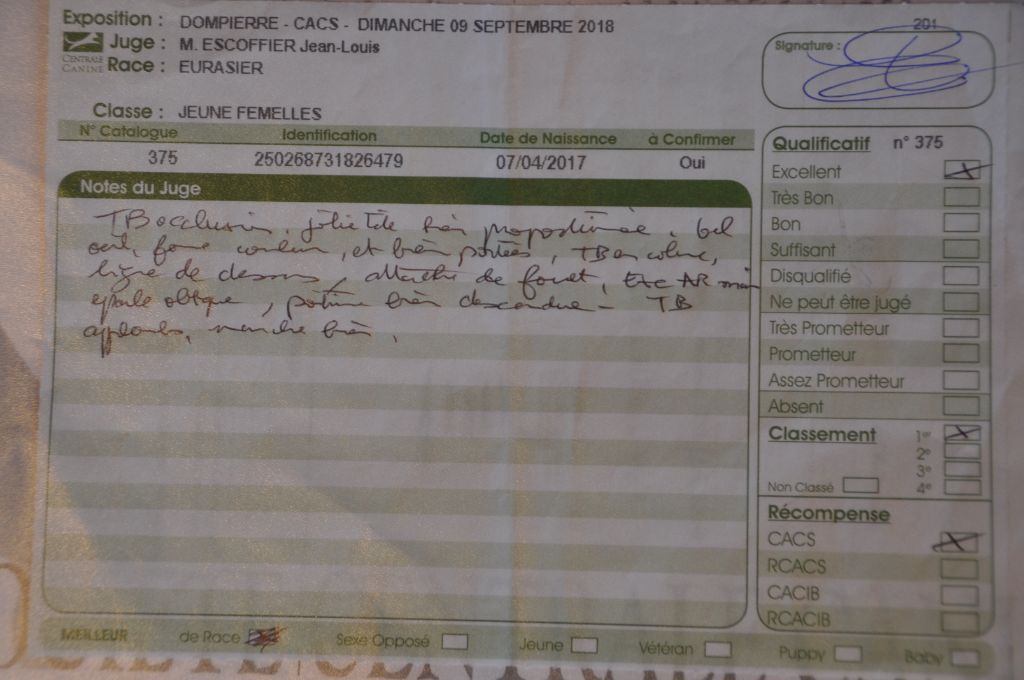 Exposition : DOMPIERRE - CACS - DIMANCHE 09 SEPTEMBRE 2018
201
Juge : M. ESCOFFIER Jean-Louis
Signature :
CENTRALE CANINE
Race : EURASIER
Classe : JEUNE FEMELLES
N° Catalogue Identification Date de Naissance à Confirmer
375 250268731826479 07/04/2017 Oui
Notes du Juge
TB occlusion, jolie tête bien proportionnée, bel
oeil, forme couleur, et bien portées, TB encolure,
ligne de dessus, attache de fouet,
épaule oblique, poitrine bien descendue - TB
applombs, marche bien.
Qualificatif n° 375
Excellent
Très Bon
Bon
Suffisant
Disqualifié
Ne peut être jugé
Très Prometteur
Prometteur
Assez Prometteur
Absent
Classement 1er
2e
3e
Non Classé 4e
Récompense
CACS
RCACS
CACIB
RCACIB
MEILLEUR de Race Sexe Opposé Jeune Vétéran Puppy Baby